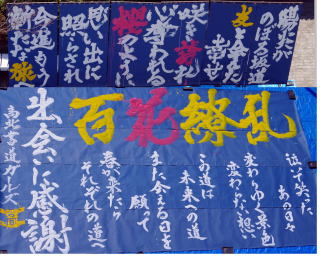 陽炎が
のぼる坂道
友と会えた
幸せ
咲き誇れ
心奪われる
櫻のように
思い出に
照らされ
今進もう
新たな旅へ
百花繚乱
泣いて笑った
あの日々
変わりゆく景色
変わらない想い
この道は
未来への道
また会える日を
願って
春が来たら
それぞれの道へ
出会いに感謝
書道ガールズ